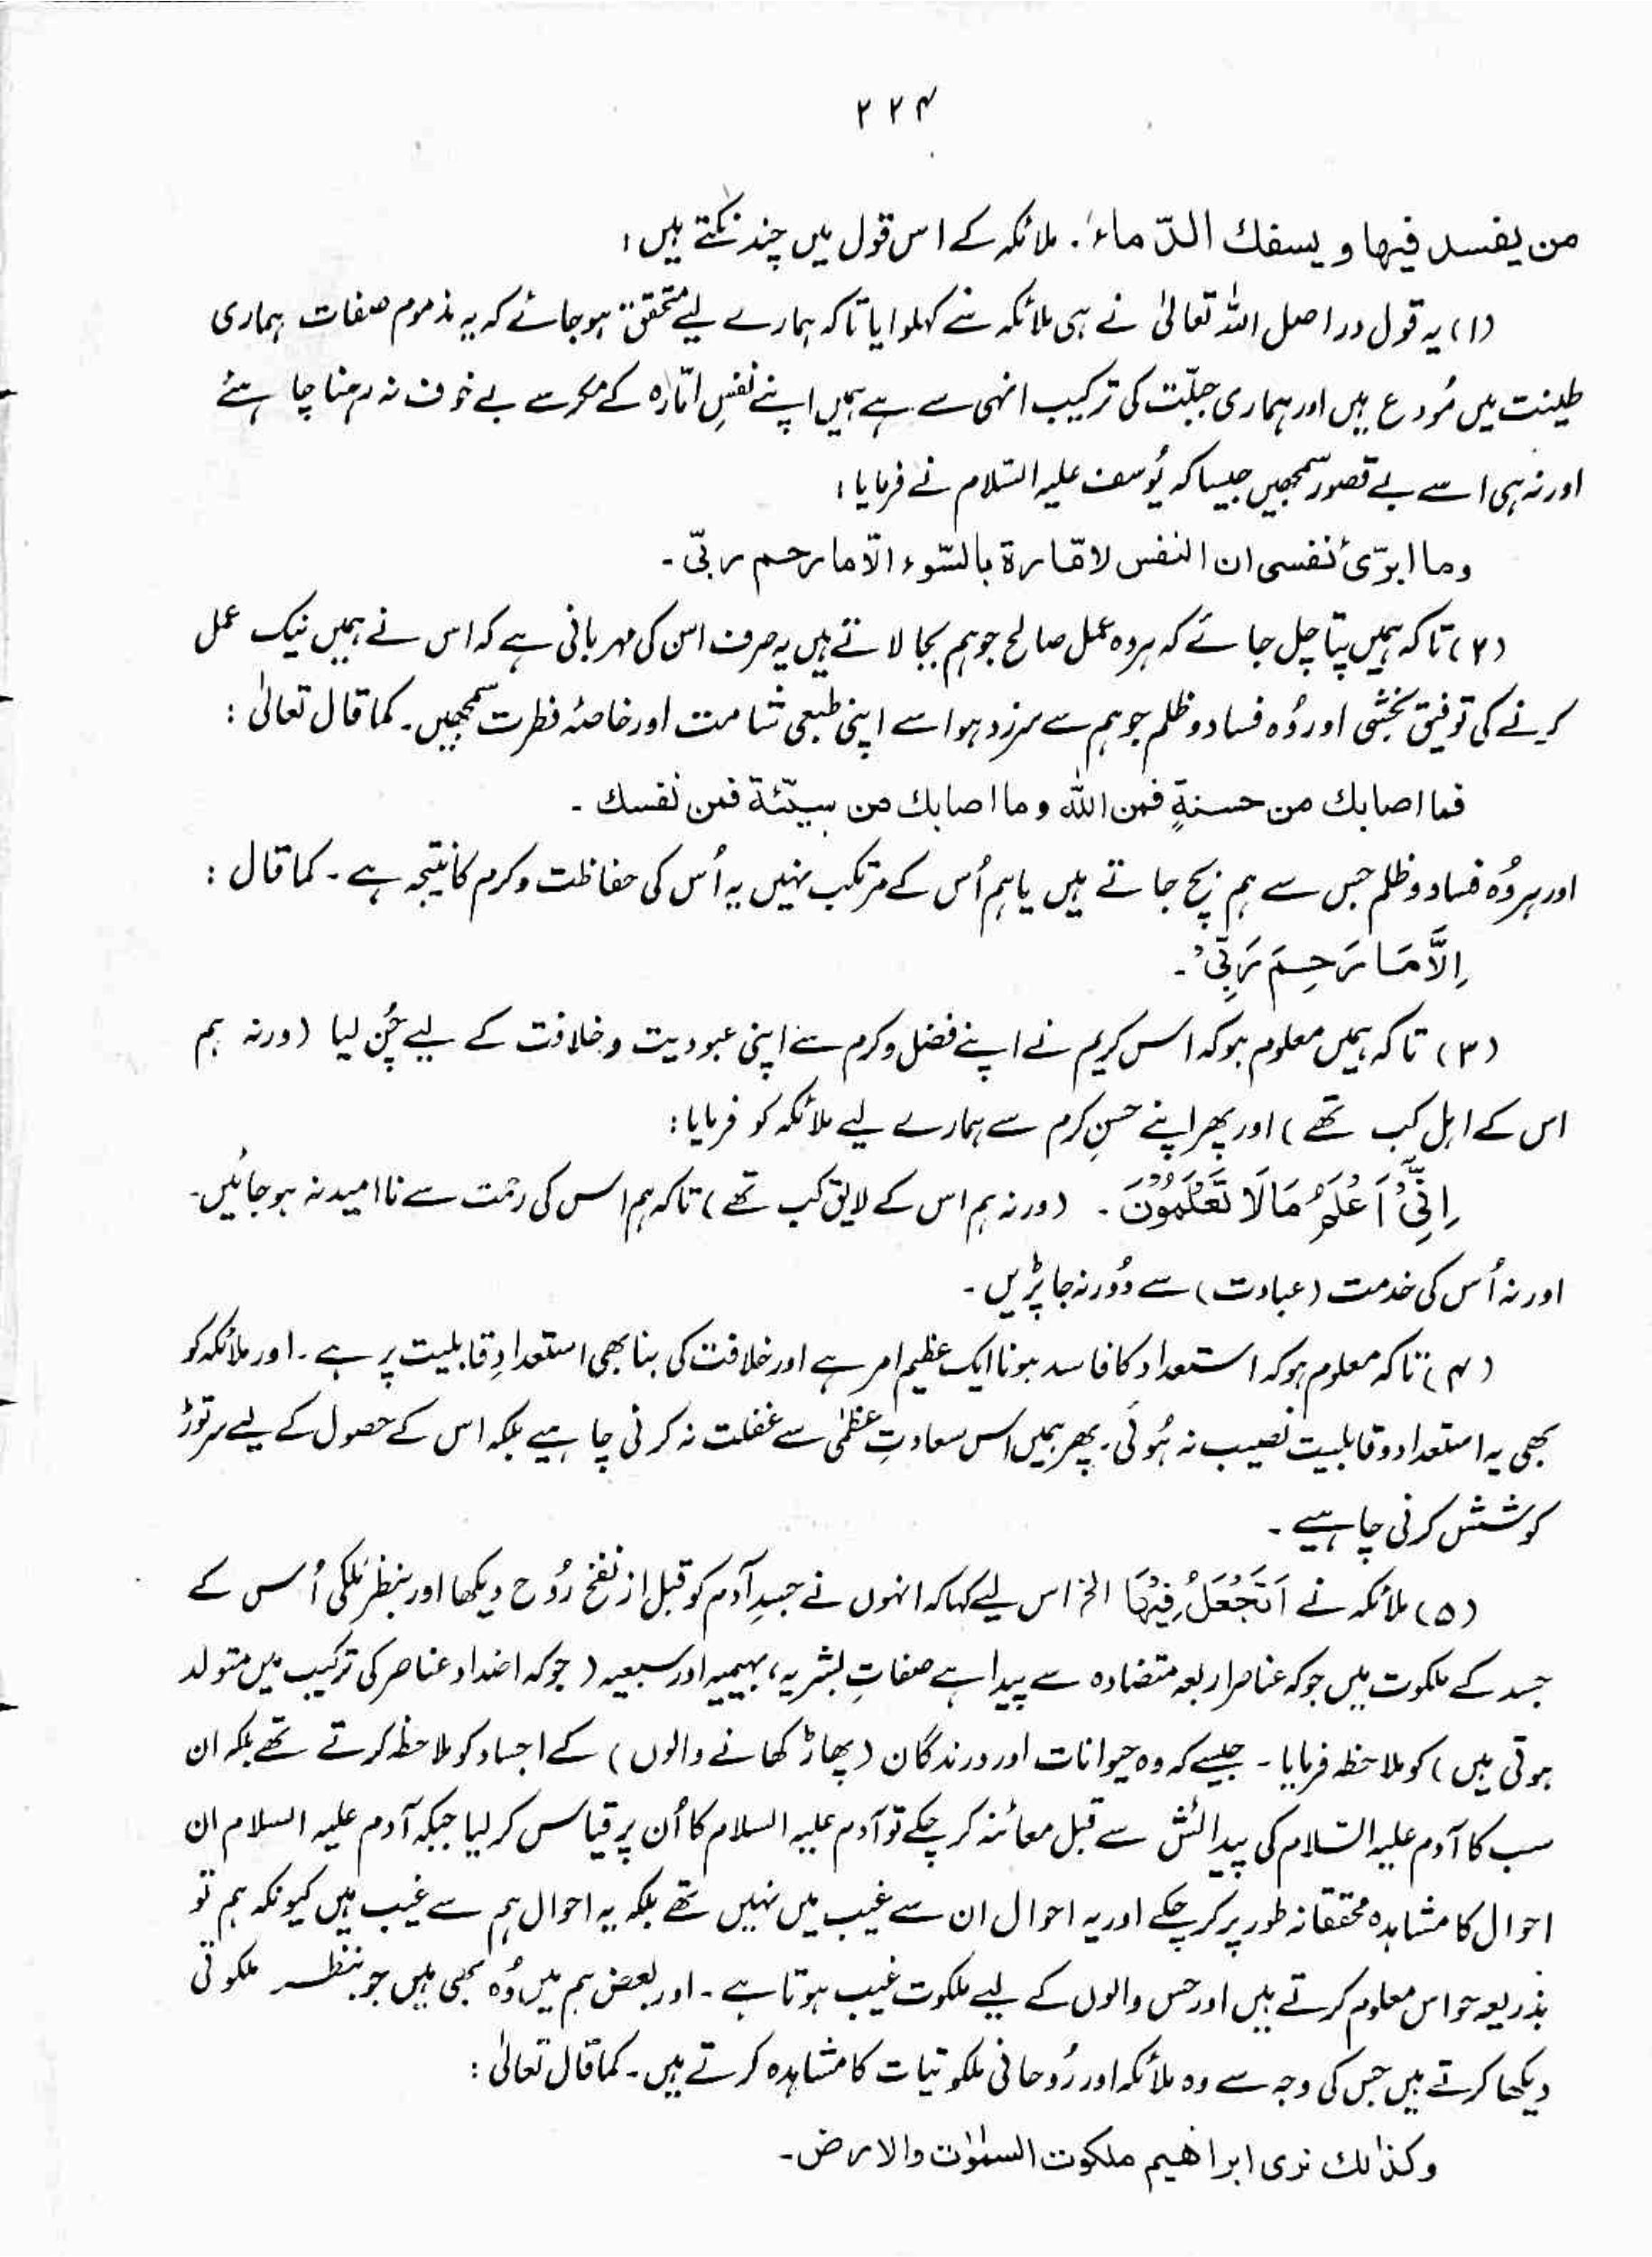 ۲۲۴
من یفسد فیھا و یسفك الدّماءَ. ملائکہ کے اس قول میں چند نکتے ہیں :
(۱) یہ قول در اصل اللہ تعالیٰ نے ہی ملائکہ سے کہلوایا تاکہ ہمارے لیے متحقق ہوجائے کہ یہ مذموم صفات ہماری
طینت میں مُودع ہیں اور ہماری جبلّت کی ترکیب انہی سے ہے ہمیں اپنے نفسِ امّارہ کے مکر سے بے خوف نہ رہنا چاہئے
اور نہ ہی اسے بے قصور سمجھیں جیسا کہ یُوسف علیہ السّلام نے فرمایا :
وما ابرّیٔ نفسی ان النفس لامّارة بالسّوء الّا ما رحم ربّی ۔
(۲) تاکہ ہمیں پتا چل جائے کہ ہر وہ عمل صالح جو ہم بجا لاتے ہیں یہ صرف اس کی مہربانی ہے کہ اس نے ہمیں نیک عمل
کرنے کی توفیق بخشی اور وُہ فساد و ظلم جو ہم سے سرزد ہوا سے اپنی طبعی شامت اور خاصۂ فطرت سمجھیں۔ کما قال تعالیٰ :
فما اصابك من حسنةٍ فمن اللہ وما اصابك من سیّئة فمن نفسك ۔
اور ہر وُہ فساد و ظلم جس سے ہم بچ جاتے ہیں یا ہم اُس کے مرتکب نہیں یہ اُس کی حفاظت و کرم کا نتیجہ ہے ۔ کما قال :
اِلَّا مَا رَحِمَ رَبِّیْ ۔
(۳) تاکہ ہمیں معلوم ہو کہ اس کریم نے اپنے فضل و کرم سے اپنی عبودیت و خلافت کے لیے چُن لیا (ورنہ ہم
اس کے اہل کب تھے) اور پھر اپنے حسنِ کرم سے ہمارے لیے ملائکہ کو فرمایا :
اِنِّیْٓ اَعْلَمُ مَا لَا تَعْلَمُوْنَ ۔ (ورنہ ہم اس کے لایق کب تھے) تاکہ ہم اس کی رحمت سے ناامید نہ ہوجائیں۔
اور نہ اُس کی خدمت (عبادت) سے دُور نہ جا پڑیں ۔
(۴) تاکہ معلوم ہو کہ استعداد کا فاسد ہونا ایک عظیم امر ہے اور خلافت کی بنا بھی استعدادِ قابلیت پر ہے ۔ اور ملائکہ کو
بھی یہ استعداد و قابلیت نصیب نہ ہُوئی۔ پھر ہمیں اس سعادتِ عظمٰی سے غفلت نہ کرنی چاہیے بلکہ اس کے حصول کے لیے سرتوڑ
کوشش کرنی چاہیے ۔
(۵) ملائکہ نے اَتَجْعَلُ فِیْهَا الخ اس لیے کہا کہ انہوں نے جسدِ آدم کو قبل از نفخ رُوح دیکھا اور بنظرِ مَلکی اُس کے
جسد کے ملکوت میں جو کہ عناصر اربعہ متضادہ سے پیدا ہے صفاتِ بشریہ، بہیمیہ اور سبعیہ (جو کہ اضداد عناصر کی ترکیب میں متولد
ہوتی ہیں) کو ملاحظہ فرمایا ۔ جیسے کہ وہ حیوانات اور درندگان (پھاڑ کھانے والوں) کے اجساد کو ملاحظہ کرتے تھے بلکہ ان
سب کا آدم علیہ السّلام کی پیدائش سے قبل معائنہ کر چکے تو آدم علیہ السلام کا اُن پر قیاس کر لیا جبکہ آدم علیہ السلام ان
احوال کا مشاہدہ محققانہ طور پر کر چکے اور یہ احوال ان سے غیب میں نہیں تھے بلکہ یہ احوال ہم سے غیب ہیں کیونکہ ہم تو
بذریعہ حواس معلوم کرتے ہیں اور حس والوں کے لیے ملکوت غیب ہوتا ہے ۔ اور بعض ہم میں وُہ بھی ہیں جو بنظر ملکوتی
دیکھا کرتے ہیں جس کی وجہ سے وہ ملائکہ اور رُوحانی ملکوتیات کا مشاہدہ کرتے ہیں ۔ کما قال تعالیٰ :
وکذٰلك نری ابراھیم ملکوت السمٰوٰت والارض ۔